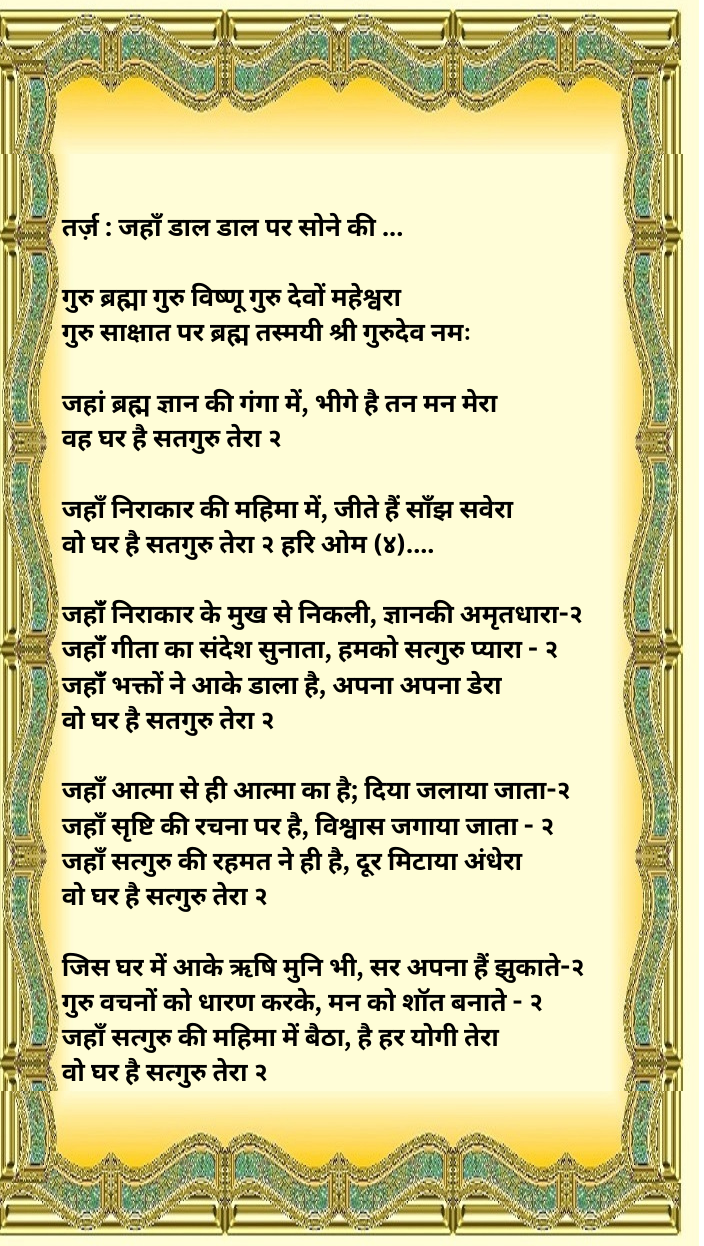 तर्ज़ : जहाँ डाल डाल पर सोने की ...
गुरु ब्रह्मा गुरु विष्णू गुरु देवों महेश्वरा
गुरु साक्षात पर ब्रह्म तस्मयी श्री गुरुदेव नमः
जहां ब्रह्म ज्ञान की गंगा में, भीगे है तन मन मेरा
वह घर है सतगुरु तेरा २
जहाँ निराकार की महिमा में, जीते हैं साँझ सवेरा
वो घर है सतगुरु तेरा २ हरि ओम (४)....
जहाँ निराकार के मुख से निकली, ज्ञानकी अमृतधारा-२
जहाँ गीता का संदेश सुनाता, हमको सत्गुरु प्यारा - २
जहाँ भक्तों ने आके डाला है, अपना अपना डेरा
वो घर है सतगुरु तेरा २
जहाँ आत्मा से ही आत्मा का है; दिया जलाया जाता-२
जहाँ सृष्टि की रचना पर है, विश्वास जगाया जाता - २
जहाँ सत्गुरु की रहमत ने ही है, दूर मिटाया अंधेरा
वो घर है सत्गुरु तेरा २
जिस घर में आके ऋषि मुनि भी, सर अपना हैं झुकाते-२
गुरु वचनों को धारण करके, मन को शॉत बनाते - २
जहाँ सत्गुरु की महिमा में बैठा, है हर योगी तेरा
वो घर है सत्गुरु तेरा २